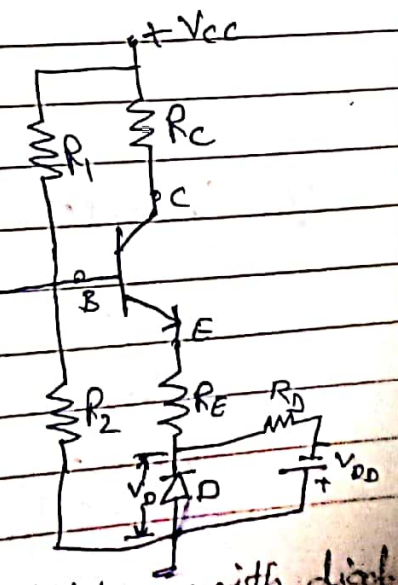 +VCC
R1
RC
C
B
E
R2
RE
RD
VD
D
VDD
+
with